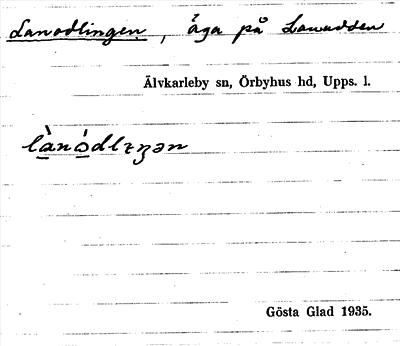 Lanodlingen, äga på Lanudden
Älvkarleby sn, Örbyhus hd, Upps. l.
lànódlɩŋən
Gösta Glad 1935.